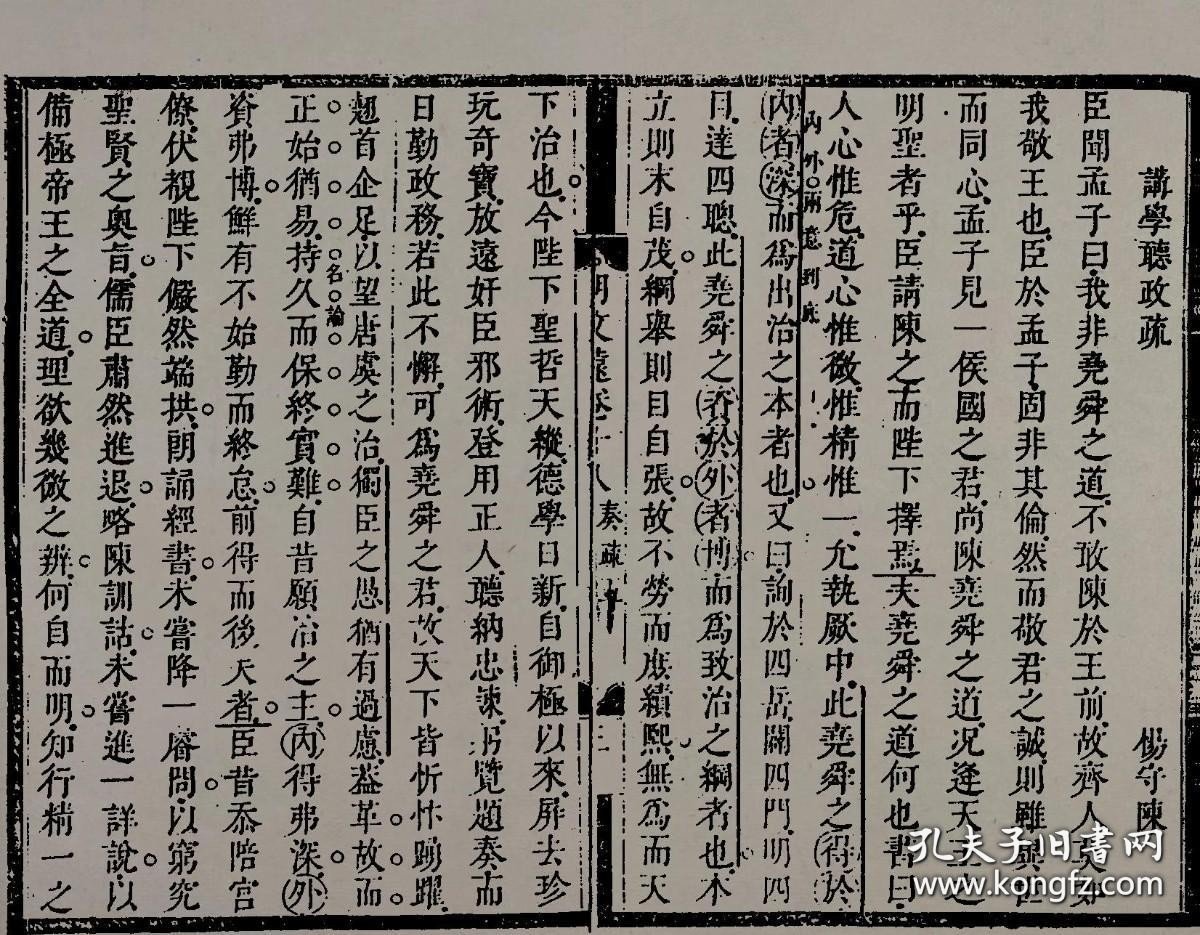 講學聽政疏 楊守陳
臣聞孟子曰我非堯舜之道不敢陳於王前故齊人莫如
我敬王也臣於孟子固非其倫然而敬君之誠則雖異世
而同心孟子見一侯國之君尚陳堯舜之道况逢天王之
明聖者乎臣請陳之而陛下擇焉夫堯舜之道何也書曰
人心惟危道心惟微惟精惟一允執厥中此堯舜之得於
內外兩意到底
內者深而爲出治之本者也又曰詢於四岳闢四門明四
目達四聰此堯舜之資於外者博而爲致治之綱者也本
立則末自茂綱舉則目自張故不勞而庶績熙無爲而天
明文遠卷十八 奏疏 二
下治也今陛下聖哲天縱德學日新自御極以來屏去珍
玩奇寶放遠奸臣邪術登用正人聽納忠諫閱覽題奏而
日勤政務若此不懈可爲堯舜之君故天下皆忻忭踴躍
翹首企足以望唐虞之治獨臣之愚猶有過慮葢革故而
名論
正始猶易持久而保終實難自昔願治之主內得弗深外
資弗博鮮有不始勤而終怠前得而後失者臣昔忝陪宮
僚伏覩陛下儼然端拱朗誦經書未嘗降一睿問以窮究
聖賢之奧旨儒臣肅然進退略陳訓詁未嘗進一詳說以
備極帝王之全道理欲幾微之辨何自而明知行精一之
孔夫子旧书网
www.kongfz.com